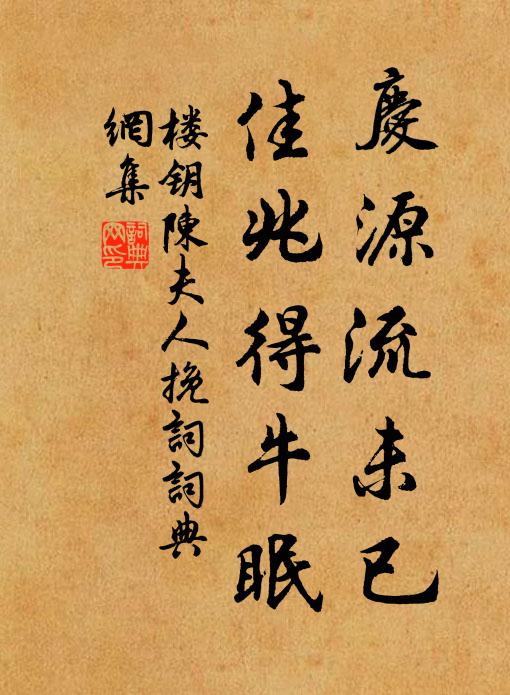 慶源流未已
佳兆得牛眠
楼钥陳夫人挽詞詞典
網集
詞典
網印